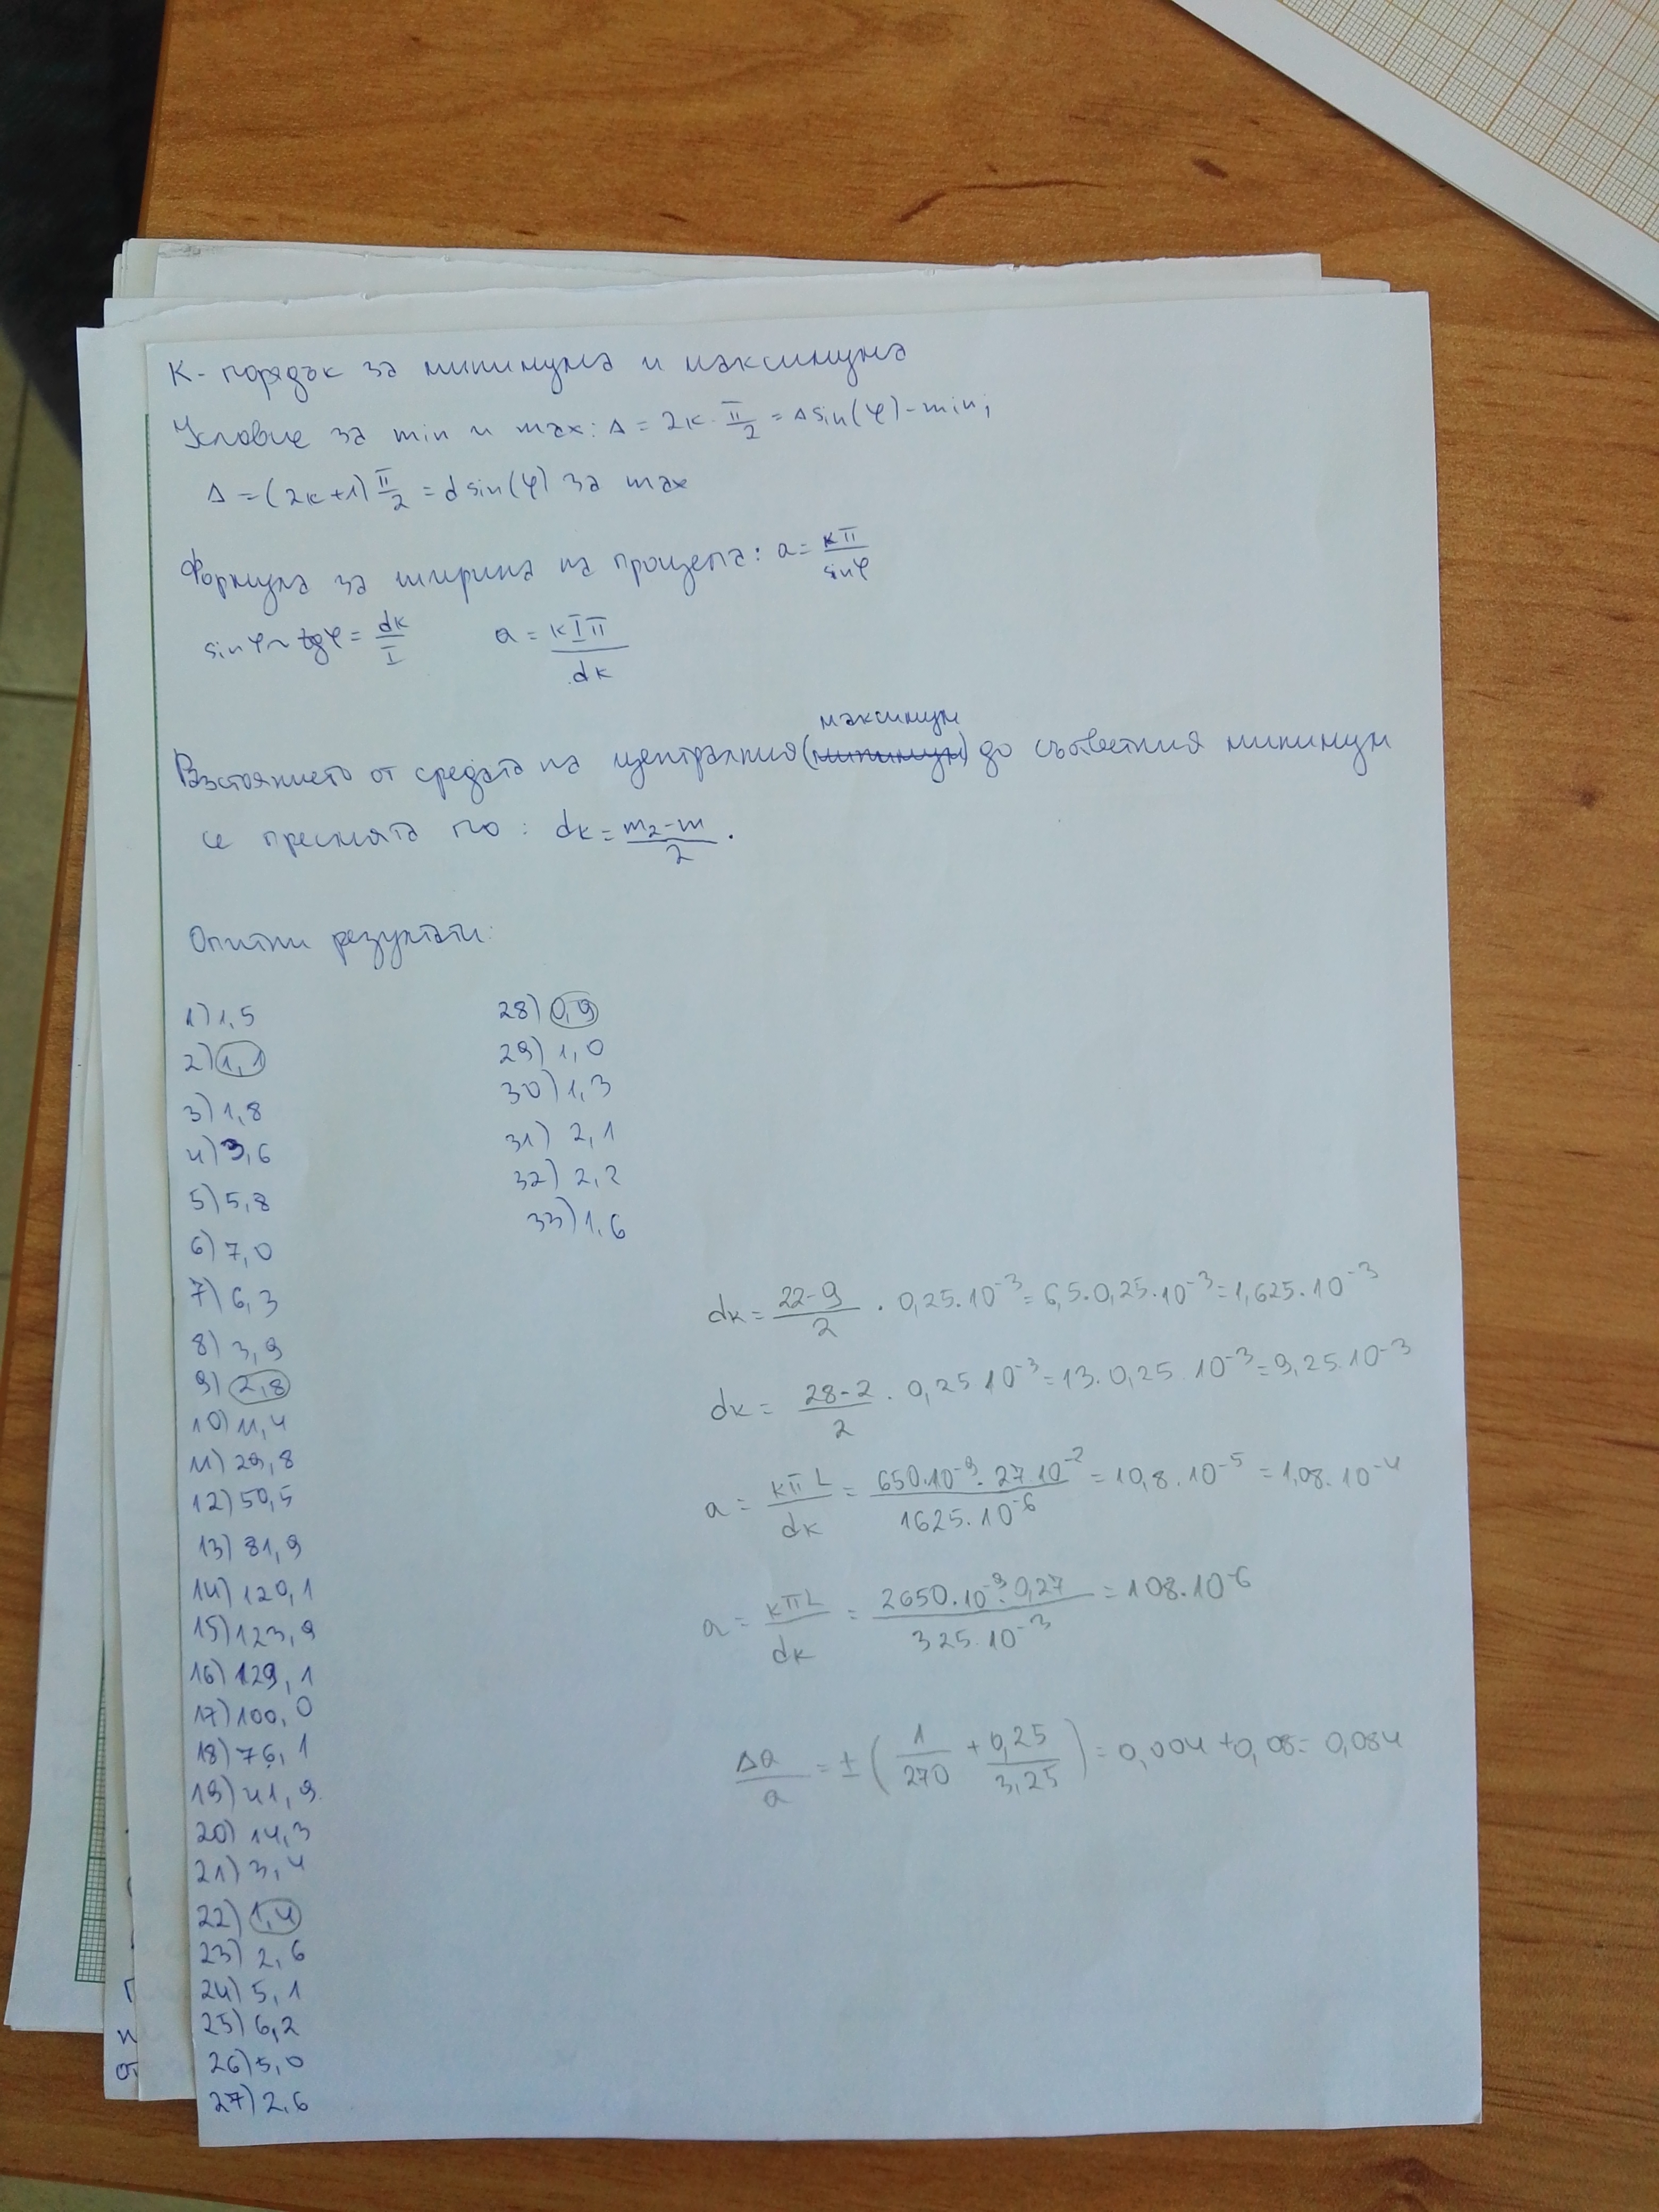 К - порядък за минимума и максимума
Условие за min и max: Δ = 2к · π/2 = Δsin(φ) - min;
Δ = (2к+1) π/2 = d sin(φ) за max
Формула за ширина на процепа: a = кπ/sinφ
sinφ ~ tgφ = dк/I a = кIπ/dк
максимум
Разстоянието от средата на централния (минимум) до съответния минимум
се пресмята по: dк = m2-m/2.
Опитни резултати:
1) 1,5
2) 1,1
3) 1,8
4) 3,6
5) 5,8
6) 7,0
7) 6,3
8) 3,9
9) 2,8
10) 11,4
11) 29,8
12) 50,5
13) 81,9
14) 120,1
15) 123,9
16) 129,1
17) 100,0
18) 76,1
19) 41,9
20) 14,3
21) 3,4
22) 1,4
23) 2,6
24) 5,1
25) 6,2
26) 5,0
27) 2,6
28) 0,9
29) 1,0
30) 1,3
31) 2,1
32) 2,2
33) 1,6
dк = 22-9/2 · 0,25.10⁻³ = 6,5.0,25.10⁻³ = 1,625.10⁻³
dк = 28-2/2 · 0,25 10⁻³ = 13.0,25.10⁻³ = 3,25.10⁻³
a = кπL/dк = 650.10⁻⁹.27.10⁻²/1625.10⁻⁶ = 10,8.10⁻⁵ = 1,08.10⁻⁴
a = кπL/dк = 2650.10⁻⁹.0,27/325.10⁻³ = 108.10⁻⁶
Δa/a = ±(1/270 + 0,25/3,25) = 0,004 + 0,08 = 0,084